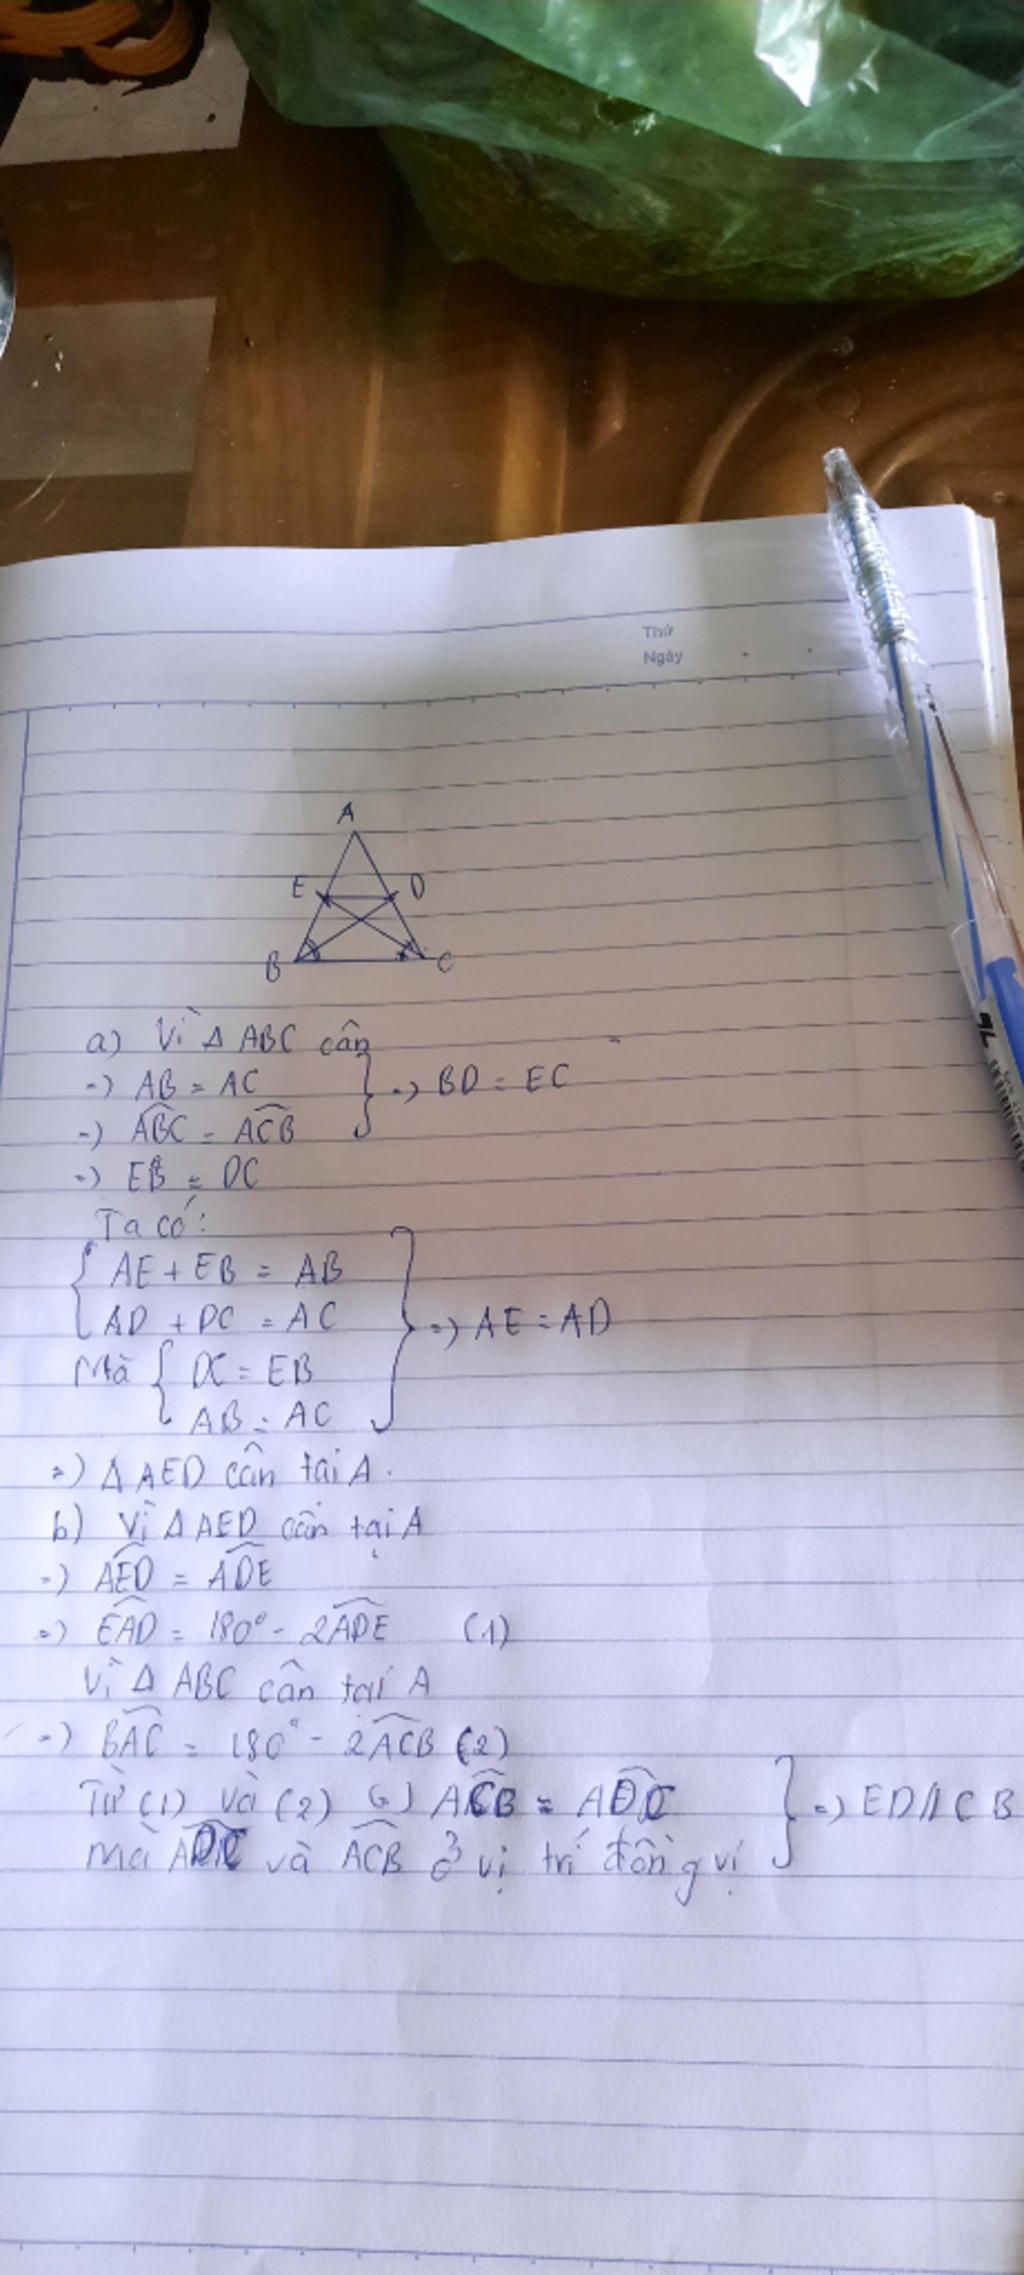 Thứ
Ngày
A
E D
B C
a) Vì Δ ABC cân
=) AB = AC
=) BD = EC
=) ABC = ACB
=) EB = DC
Ta có:
AE + EB = AB
AD + DC = AC
=) AE = AD
Mà DC = EB
AB = AC
=) Δ AED cân tại A.
b) Vì Δ AED cân tại A
=) AED = ADE
=) EAD = 180° - 2ADE (1)
Vì Δ ABC cân tại A
=) BAC = 180° - 2ACB (2)
Từ (1) và (2) ACB =
=) ED // CB
Mà và ACB ở vị trí đồng vị